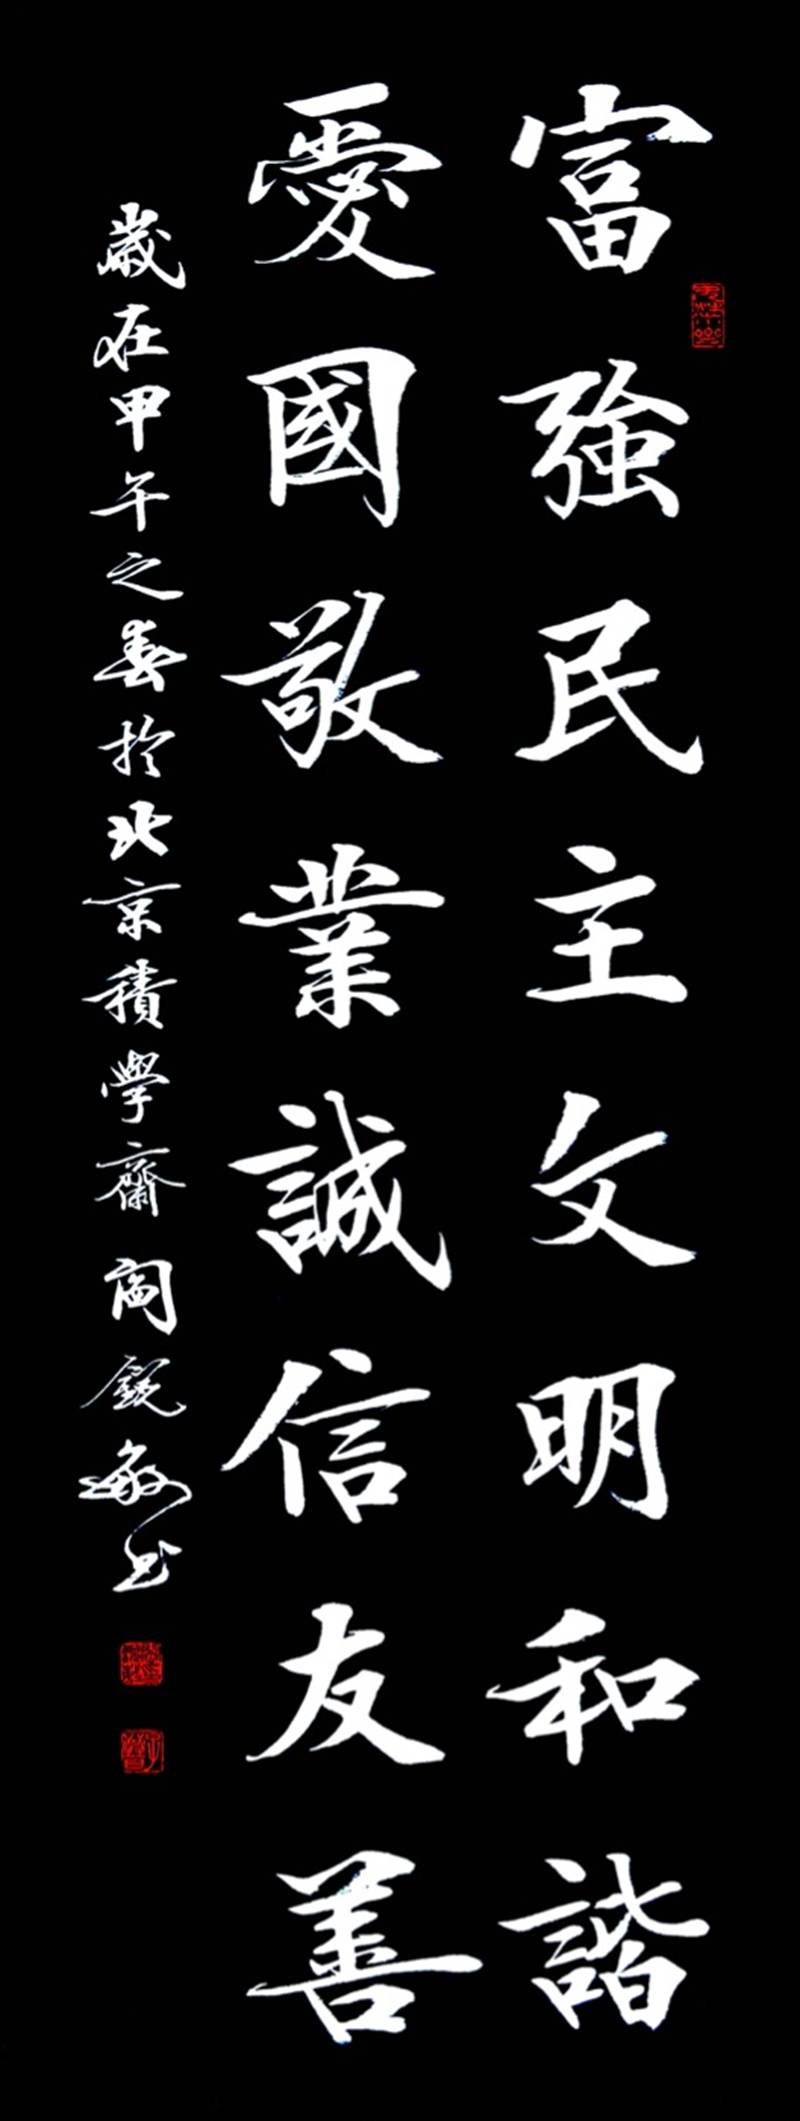 富強民主文明和諧
愛國敬業誠信友善
歲在甲午之春於北京積學齋閻銳敏书